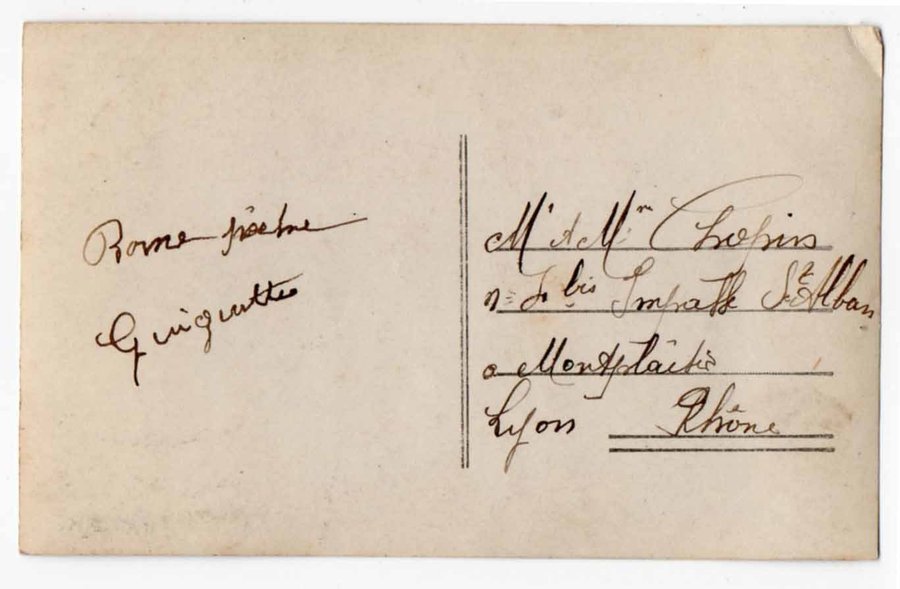 Bonne pêche
Guinguette
Mr & Mme Chopin
n= bis Impasse St Alban
a Montplaisir
Lyon Rhône